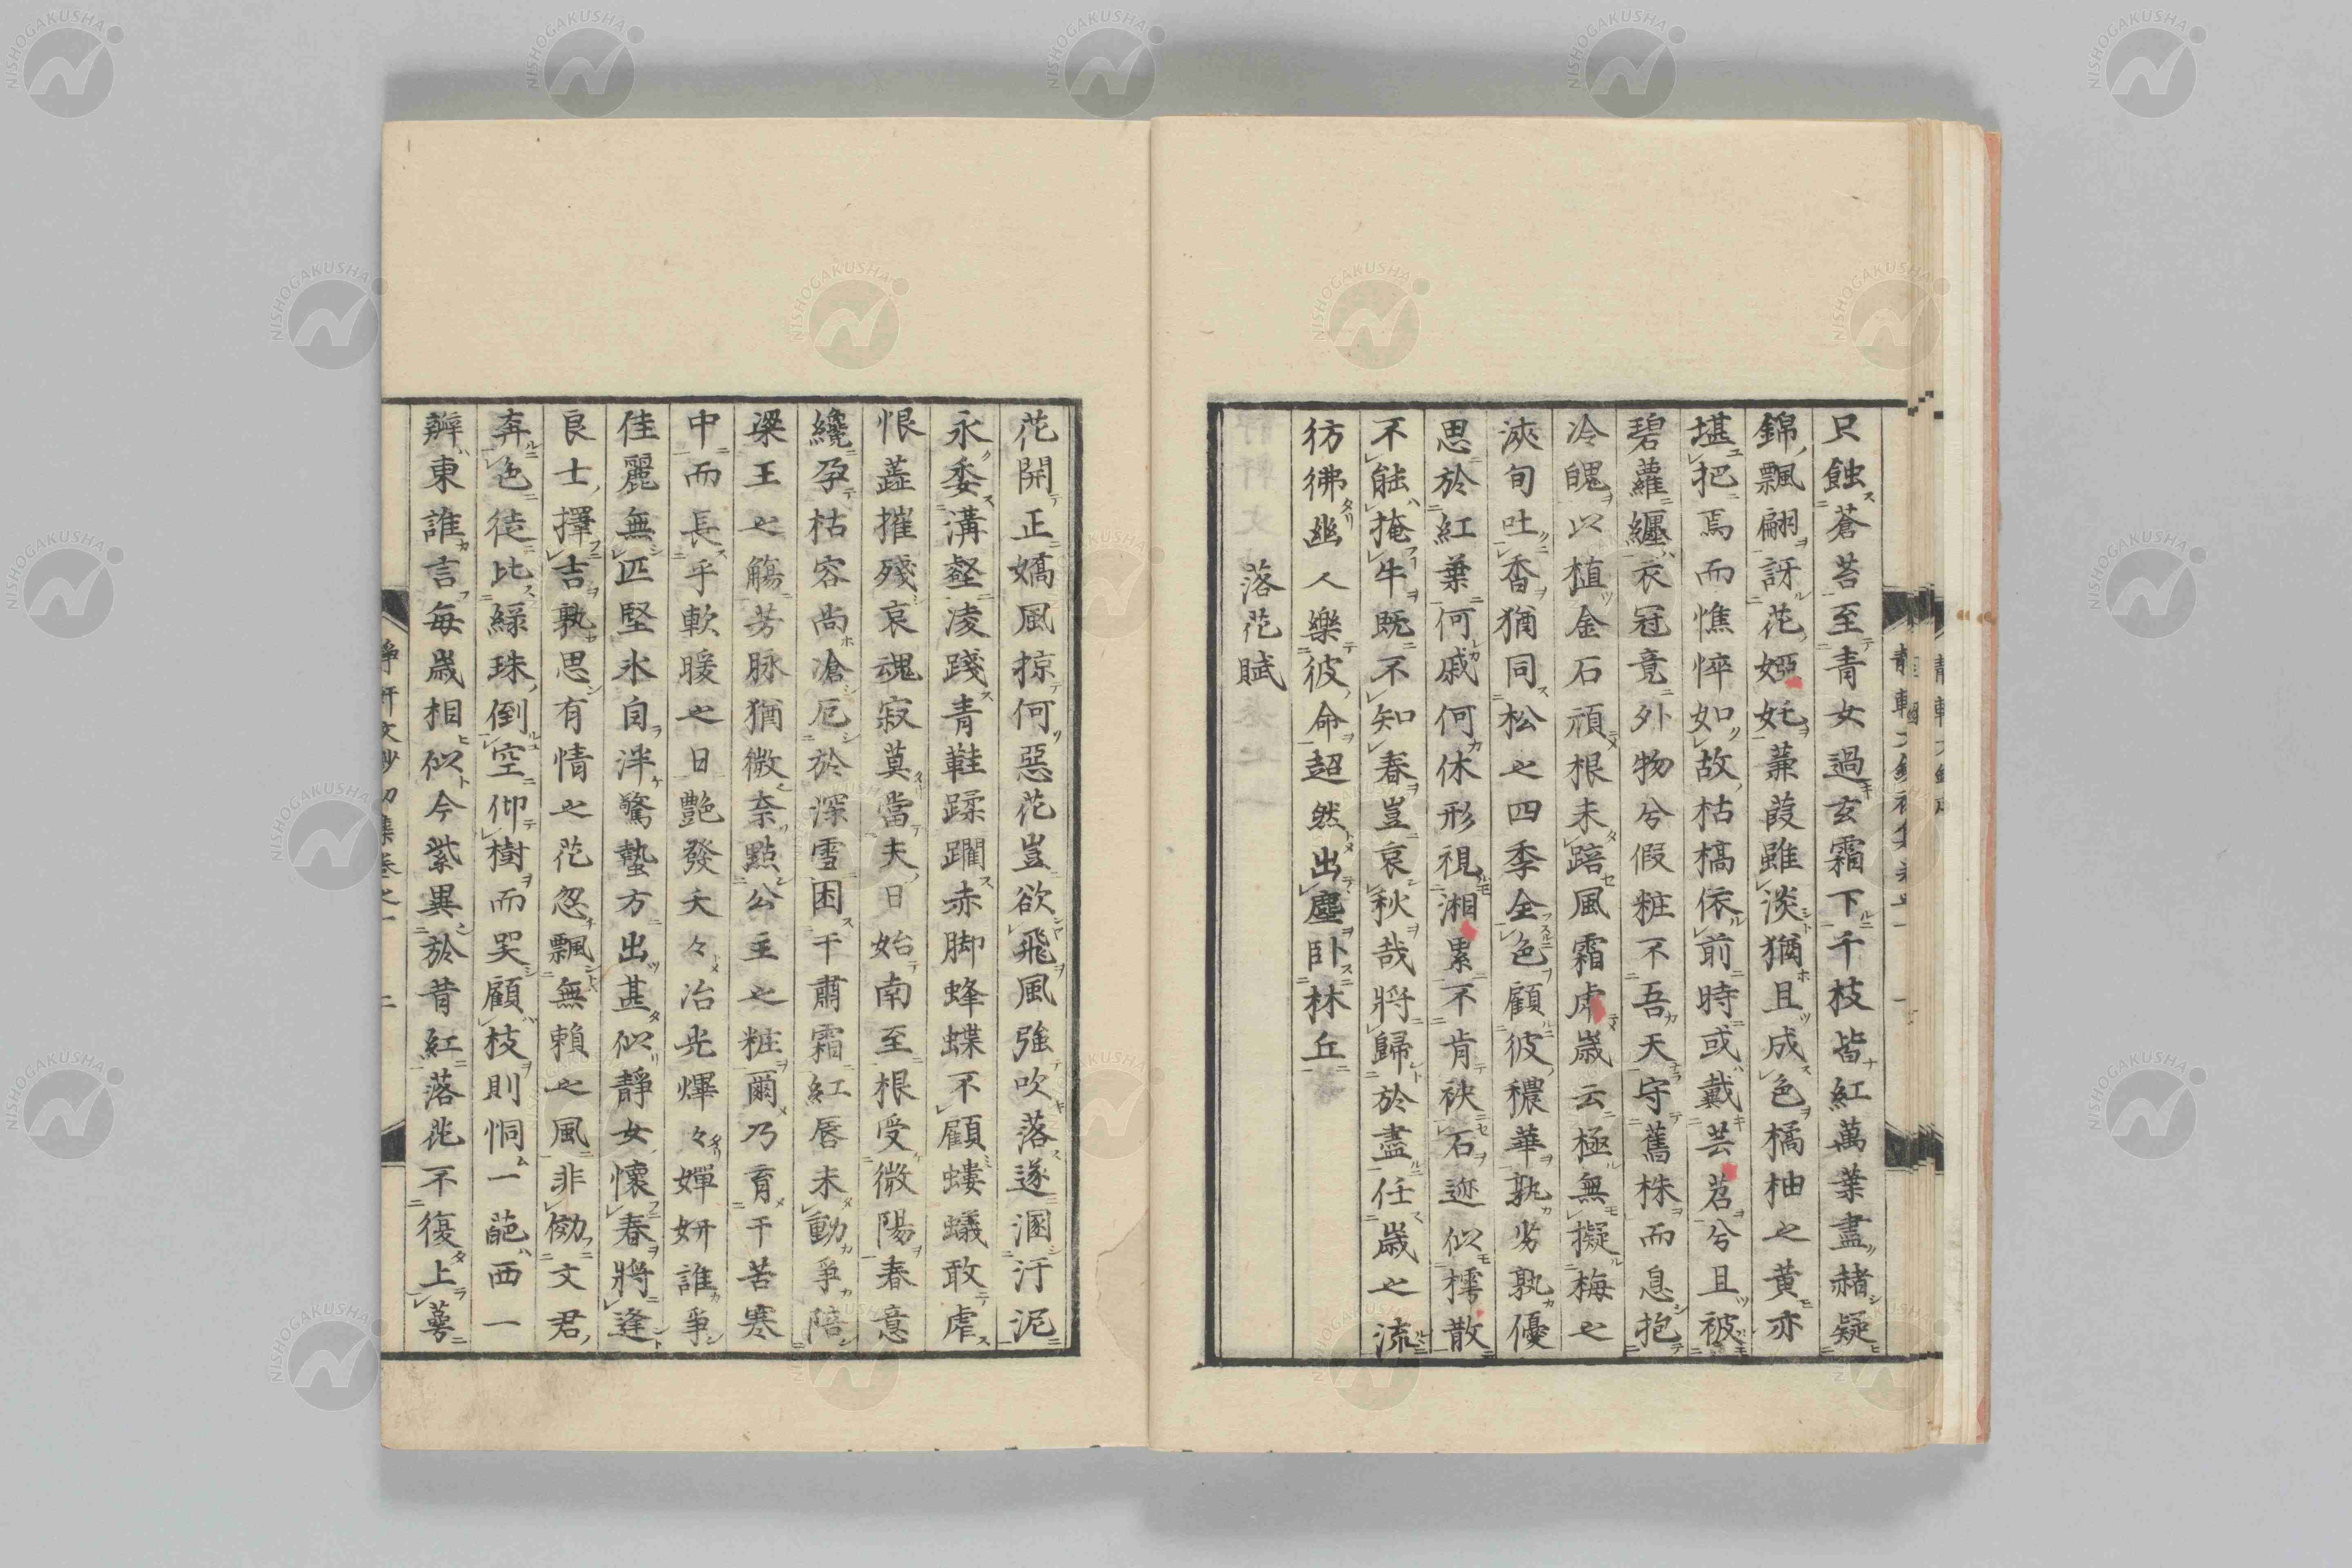 只蝕蒼苔至青女過玄霜下千枝皆紅萬葉盡赭疑
錦飄翩訝花婭奼蒹葭雖淡猶且成色橘柚之黄亦
堪把焉而憔悴如故枯槁依前時或戴芸苕兮且被
碧蘿纏衣冠竟外物兮假粧不吾天守舊株而息抱
冷魄以植金石頑根未踣風霜虐歳云極無擬梅之
浹旬吐香猶同松之四季全色顧彼穠華孰劣孰優
思於紅葉何戚何休形視湘累不肯袂石迹似樗散
不能掩牛既不知春豈哀秋哉將歸於盡任歳之流
彷彿幽人樂彼命超然出塵卧林丘
落花賦
花開正嬌風掠何惡花豈欲飛風強吹落遂溷汙泥
永委溝壑凌踐青鞋蹂躙赤脚蜂蝶不顧螻蟻敢虐
恨蘂摧殘哀魂寂莫當夫日始南至根受微陽春意
纔孕枯容尚滄厄於深雪困干肅霜紅唇未動爭陪
梁王之觴芳脉猶微奈點公主之粧爾乃育干苦寒
中而長乎軟暖之日艷發夭々冶光爗々嬋妍誰爭
佳麗無匹堅氷自泮驚蟄方出甚似靜女懷春將逢
良士擇吉孰思有情之花忽飄無賴之風非効文君
奔色徒比緑珠倒空仰樹而哭顧枝則恫一葩西一
辨東誰言每歳相似今紫異於昔紅落花不復上萼
靜軒文鈔初集卷之一 二